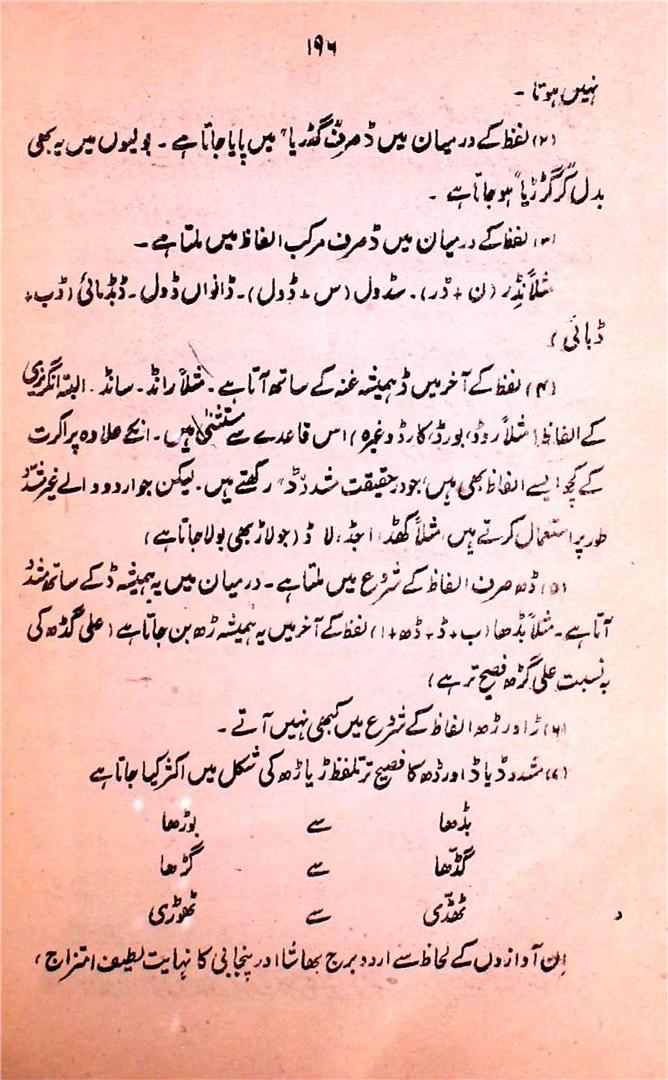 ۱۹۶
نہیں ہوتا ۔
(۲) لفظ کے درمیان میں ڈ صرف "گڈریا" میں پایا جاتا ہے ۔ بولیوں میں یہ بھی
بدل کر "گڑریا" ہو جاتا ہے ۔
(۳) لفظ کے درمیان میں ڈ صرف مرکب الفاظ میں ملتا ہے ۔
مثلاً نڈر (ن + ڈر) ۔ سڈول (س + ڈول) ۔ ڈانواں ڈول ۔ ڈبڈبائی (ڈب +
ڈبائی)
(۴) لفظ کے آخر میں ڈ ہمیشہ غنہ کے ساتھ آتا ہے ۔ مثلاً رانڈ ۔ سانڈ ۔ البتہ انگریزی
کے الفاظ (مثلاً روڈ، بورڈ، کارڈ وغیرہ) اس قاعدے سے مستثنیٰ ہیں ۔ انکے علاوہ پراکرت
کے کچھ ایسے الفاظ بھی ہیں، جو درحقیقت مشدد "ڈ" رکھتے ہیں ۔ لیکن جو اردو والے غیر مشدّد
طور پر استعمال کرتے ہیں، مثلاً کھڈ، اجڈ، لاڈ (جو لاڑ بھی بولا جاتا ہے)
(۵) ڈھ صرف الفاظ کے شروع میں ملتا ہے ۔ درمیان میں یہ ہمیشہ ڈ کے ساتھ مشدد
آتا ہے ۔ مثلاً بڈھا (ب + ڈ + ڈھ + ا) لفظ کے آخر میں یہ ہمیشہ ڑھ بن جاتا ہے (علی گڈھ کی
بہ نسبت علی گڑھ فصیح تر ہے)
(۶) ڑ اور ڑھ الفاظ کے شروع میں کبھی نہیں آتے ۔
(۷) مشدد ڈ یا ڈ اور ڈھ کا فصیح تر تلفظ ڑ یا ڑھ کی شکل میں اکثر کیا جاتا ہے
بڈھا سے بوڑھا
گڈّھا سے گڑھا
ٹھڈّی سے ٹھوڑی
اِن آوازوں کے لحاظ سے اردو برج بھاشا اور پنجابی کا نہایت لطیف امتزاج ،